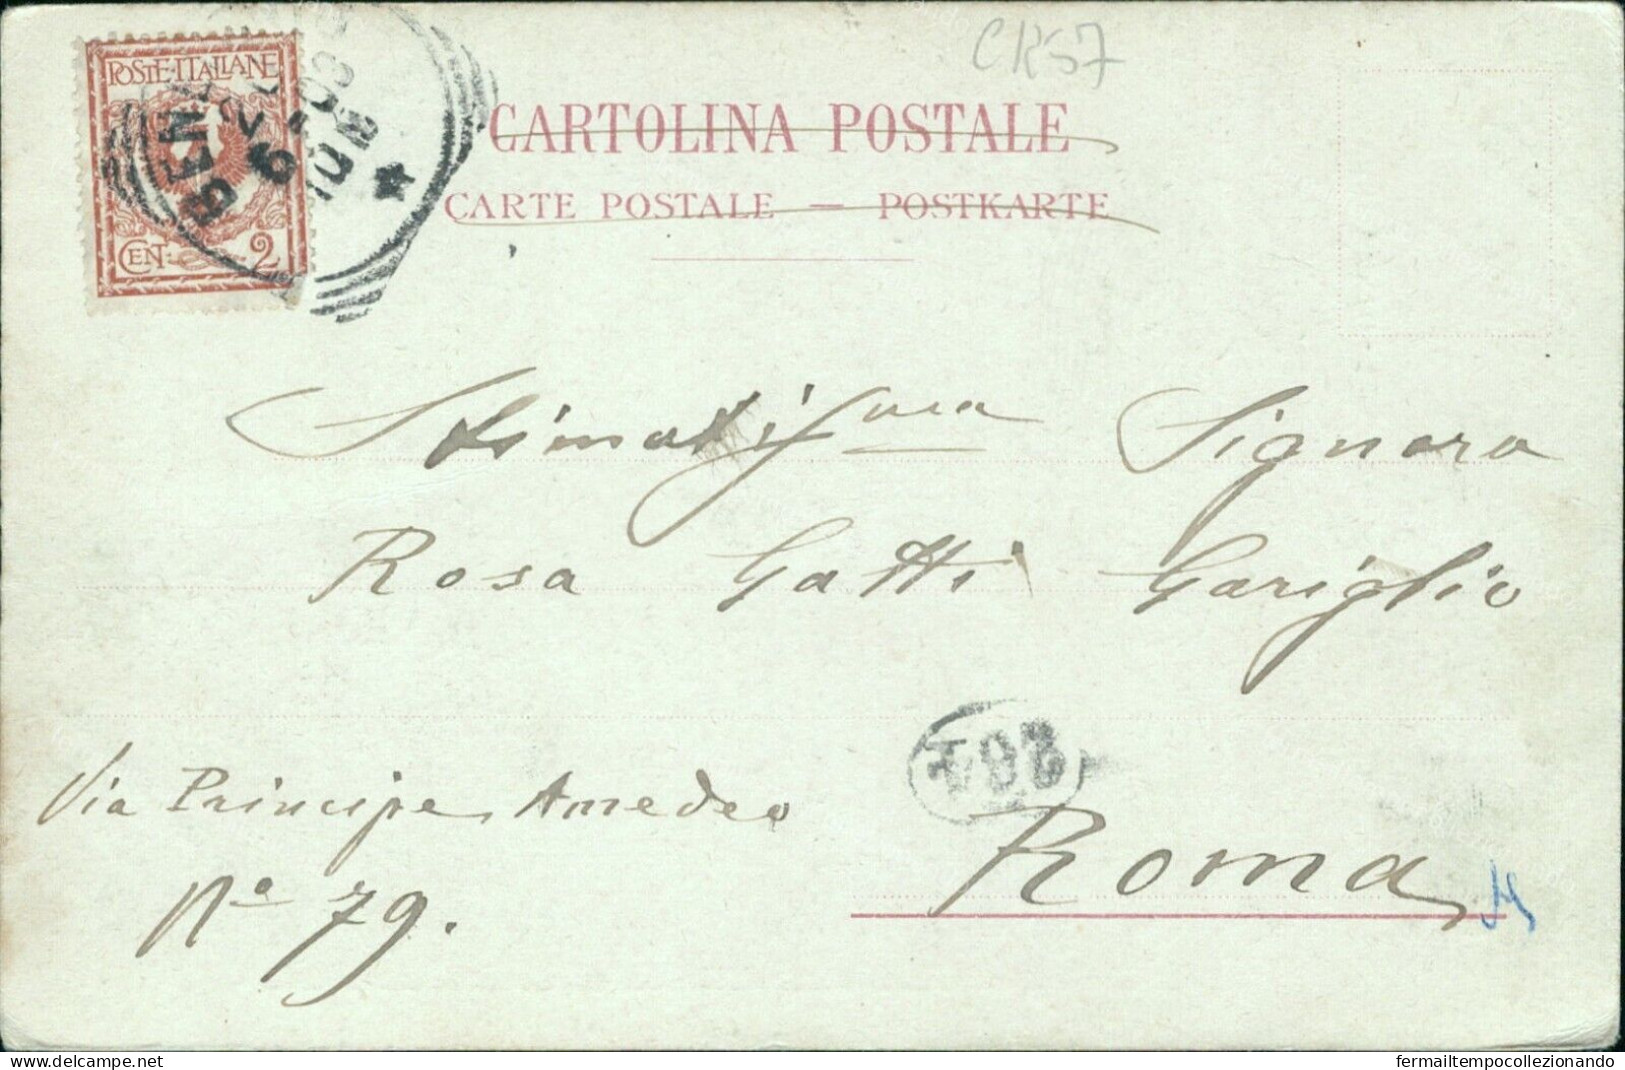 CK57
POSTE·ITALIANE
CEN. 2
CARTOLINA POSTALE
CARTE POSTALE — POSTKARTE
Stimatissma Signora
Rosa Gatti Gariglio
Via Principe Amedeo
Nº 79.
Roma
delcampe.net
fermailtempocollezionando